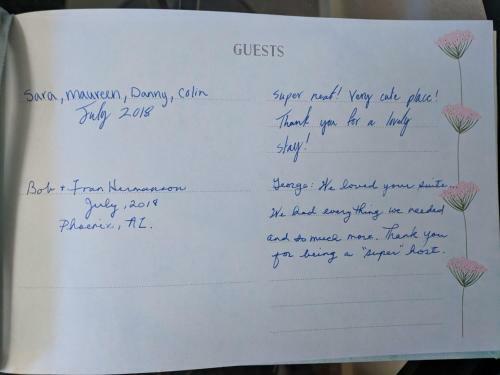 GUESTS
Sara, Maureen, Danny, Colin
July 2018
Super neat! Very cute place!
Thank you for a lovely
stay!
Bob + Fran Hermanson
July, 2018
Phoenix, AZ.
George: We loved your suite...
We had everything we needed
and so much more. Thank you
for being a "super" host.